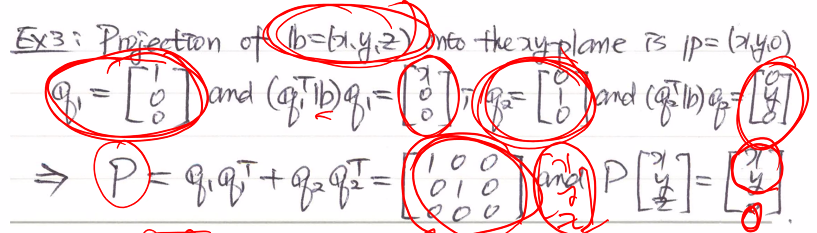 Ex3: Projection of b=(x,y,z) onto the xy-plane is p=(x,y,0)
q₁ = [1 0 0] and (q₁ᵀb)q₁ = [x 0 0], q₂ = [0 1 0] and (q₂ᵀb)q₂ = [0 y 0]
⇒ P = q₁q₁ᵀ + q₂q₂ᵀ = [1 0 0; 0 1 0; 0 0 0] and P [x y z] = [x y 0].
x y z